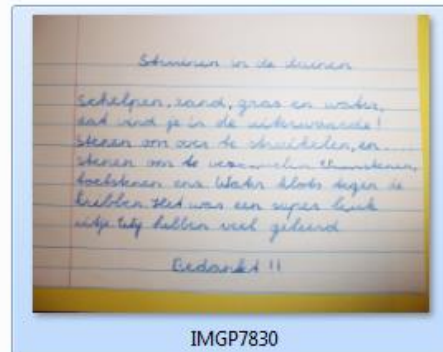 Struinen in de duinen
Schelpen, zand, gras en water,
dat vind je in de uiterwaarde!
stenen om over te struikelen, en....
stenen om te verzamelen
toetsstenen enz. Water klots tegen de
kribben. Het was een super leuk
uitje. Wij hebben veel geleerd
Bedankt !!
IMGP7830